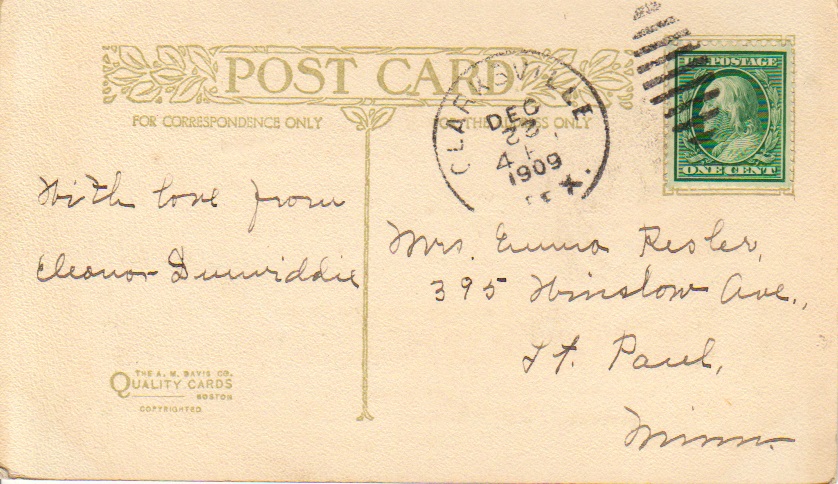 POST CARD
FOR CORRESPONDENCE ONLY
ONLY
CLARKSVILLE
DEC
4 P
1909
TEX.
U.S. POSTAGE
ONE CENT
With love from
Eleanor Dunwiddie
Mrs. Emma Resler,
395 Winslow Ave.,
St. Paul,
Minn.
THE A. M. DAVIS CO.
QUALITY CARDS
BOSTON
COPYRIGHTED